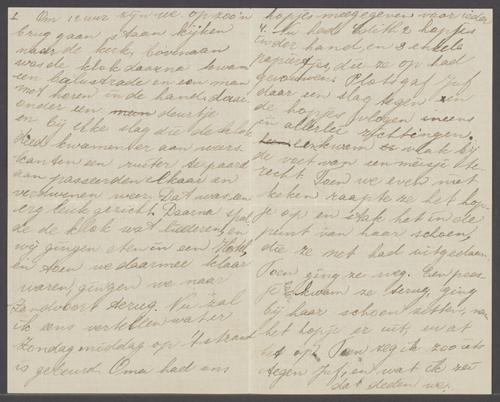 2 Om 12 uur zijn we op zoo'n
brug gaan staan kijken
naar de kerk, bovenaan
was de klok daarna kwam
een balustrade en een man
met horen in de hand, daar
onder een deurtje
en bij elke slag die de klok
deed kwam er aan weers
kanten een ruiter te paard
aan passeerden elkaar en
verdwenen weer. Dat was een
erg leuk gezicht. Daarna
de de klok wat luideren, en
wij gingen eten in een Hotel,
en toen we daarmee klaar
waren, gingen we naar
Zandvoort terug. Nu zal
ik eens vertellen wat er
Zondagmiddag op 't strand
is gebeurd. Oma had ons
hopjes meegegeven voor ieder
4. Nu had Edith 2 hopjes
in der hand, en 3 enkele
papiertjes, die ze op had
gevouwen. Plots gaf Juf
daar een slag tegen en
de hopjes vlogen ineens
in allerlei richtingen.
kwam vlak bij
de voet van een meisje te-
recht. Toen we even niet
keken raapte ze het hop-
je op en stak het in de
punt van haar schoen,
die ze net had uitgedaan.
Toen ging ze weg. Een poos-
je kwam ze terug, ging
bij haar schoen zitten, nam
het hopje er uit, en at
het op. Toen zeg ik zoo iets
tegen Juf, en wat ik zei
dat deden we.